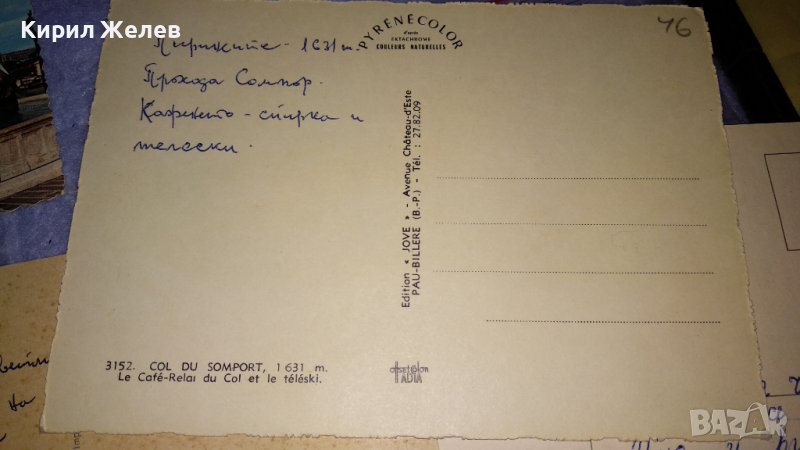 Кирил Желев
76
PYRENECOLOR
d'après
EKTACHROME
COULEURS NATURELLES
Пиринеите - 1631 m.
Прохода Сомпор.
Кафенето - спирка и
телески.
Edition « JOVE » - Avenue Château-d'Este
PAU-BILLERE (B.-P.) - Tél. : 27.82.09
3152. COL DU SOMPORT, 1 631 m.
Le Café-Relai du Col et le téléski.
IADIA
на
BAZAR